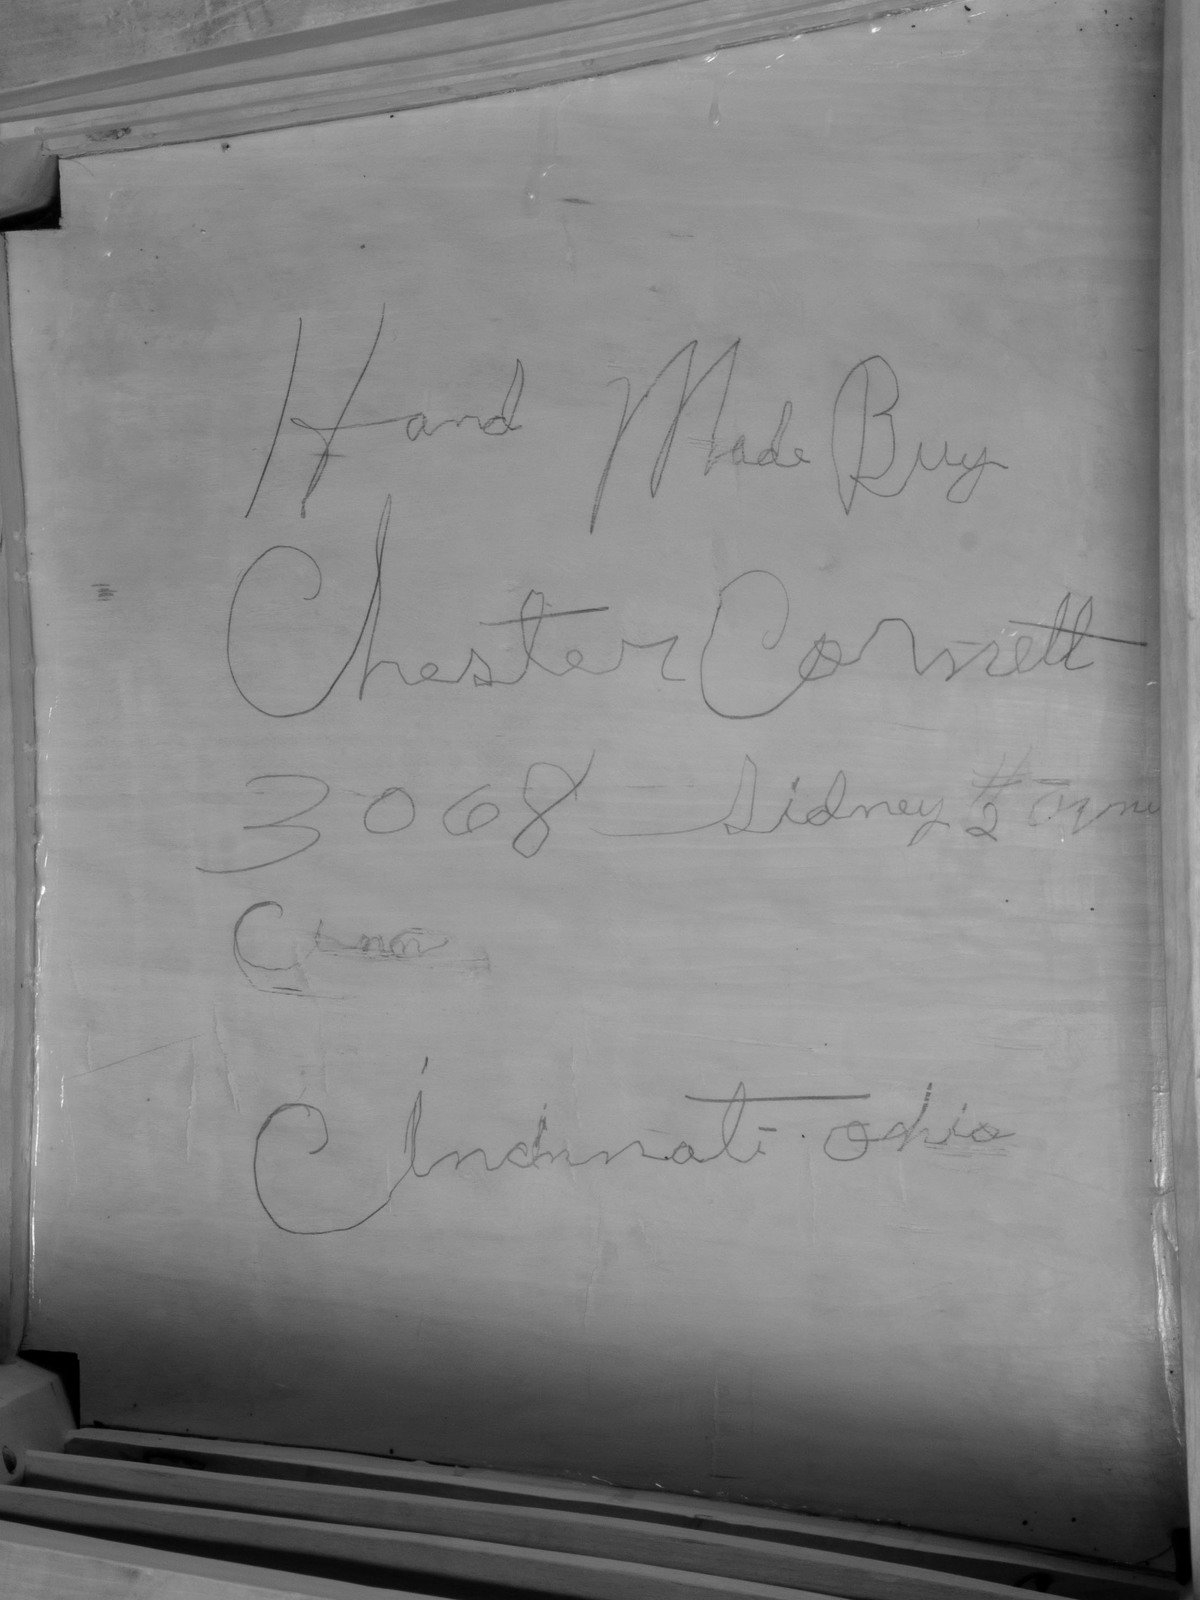 Hand Made Buy
Chester Cornett
3068 — Sidney #2
Cinn
Cincinnati Ohio